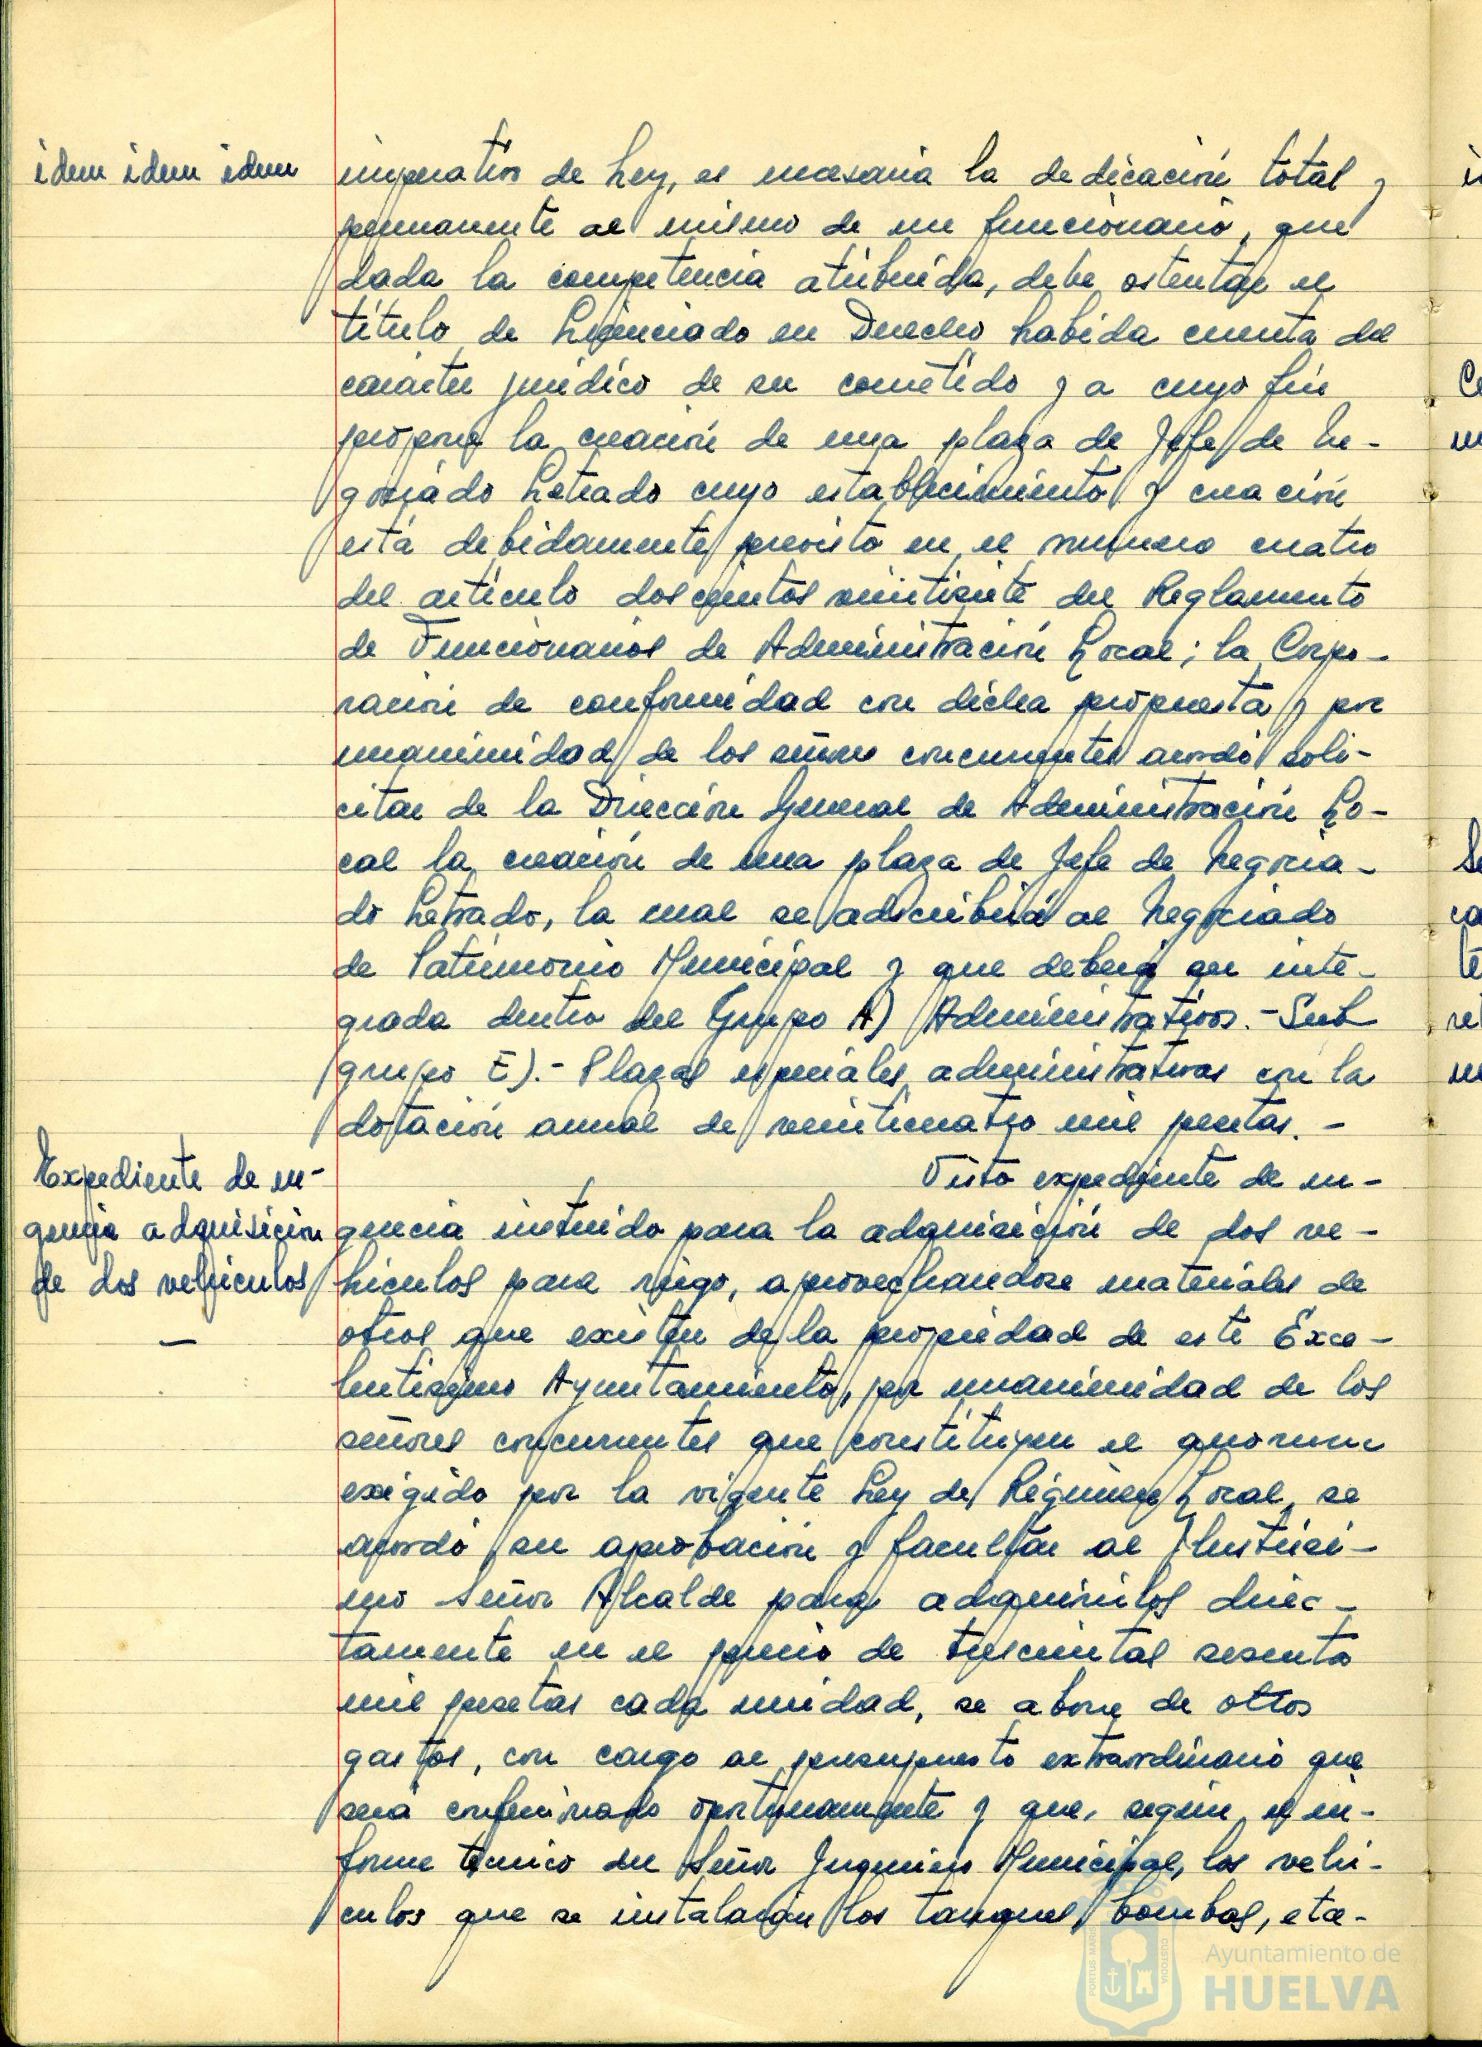 idem idem idem
imperativo de Ley, es necesaria la dedicación total y
permanente al mismo de un funcionario, que
dada la competencia atribuida, debe ostentar el
título de Licenciado en Derecho habida cuenta del
carácter jurídico de su cometido y a cuyo fin
propone la creación de una plaza de Jefe de Ne-
gociado Letrado cuyo establecimiento y creación
está debidamente previsto en el número cuatro
del artículo doscientos veintisiete del Reglamento
de Funcionarios de Administración Local; la Corpo-
ración de conformidad con dicha propuesta y por
unanimidad de los señores concurrentes acordó soli-
citar de la Dirección General de Administración Lo-
cal la creación de una plaza de Jefe de Negocia-
do Letrado, la cual se adscribirá al Negociado
de Patrimonio Municipal y que deberá ser inte-
grada dentro del Grupo A) Administrativos.- Sub
grupo E).- Plazas especiales administrativas con la
dotación anual de veinticuatro mil pesetas. -
Expediente de ur-
gencia adquisición
de dos vehículos
—
Visto expediente de ur-
gencia instruido para la adquisición de dos ve-
hículos para riego, aprovechandose materiales de
otros que existen de la propiedad de este Exce-
lentísimo Ayuntamiento, por unanimidad de los
señores concurrentes que constituyen el quorum
exigido por la vigente Ley de Régimen Local, se
acordó su aprobación y facultar al Ilustrísi-
mo Señor Alcalde para adquirirlos direc-
tamente en el precio de trescientas sesenta
mil pesetas cada unidad, se abone de otros
gastos, con cargo al presupuesto extraordinario que
será confeccionado oportunamente y que, según el in-
forme técnico del Señor Ingeniero Municipal, los vehí-
culos que se instalarán los tanques, bombas, etc-
PORTUS MARIS
CUSTODIA
Ayuntamiento de
HUELVA